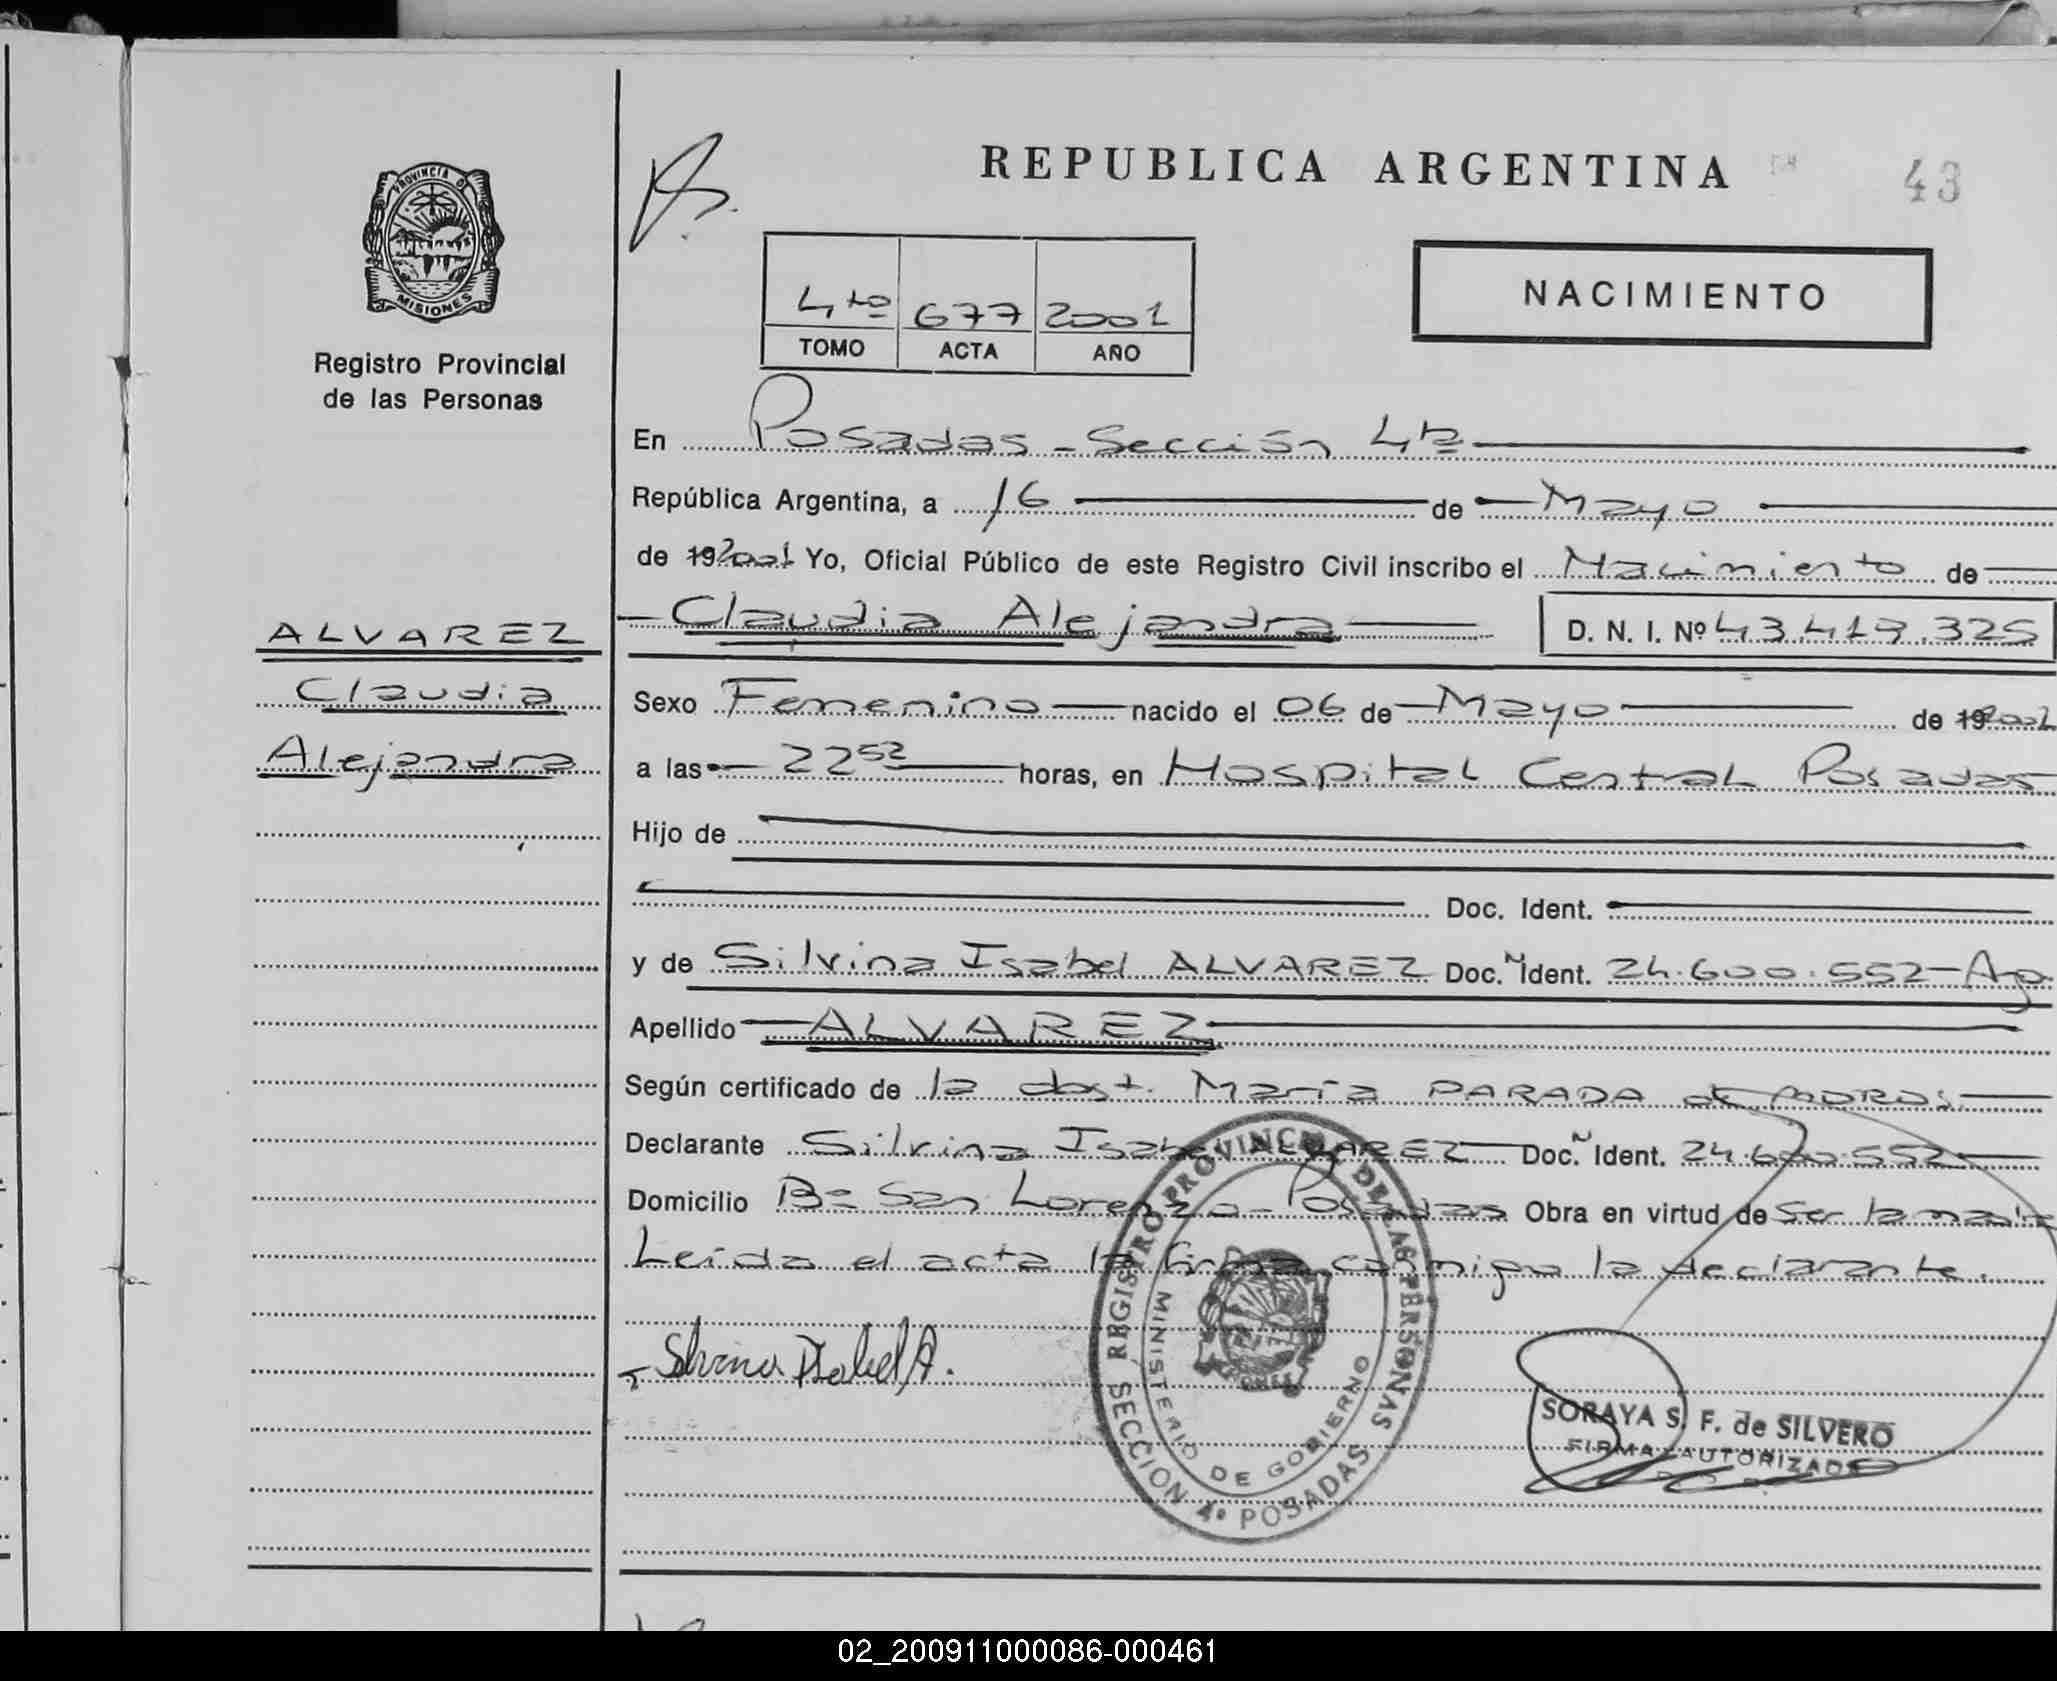 PROVINCIA DE
MISIONES
Registro Provincial
de las Personas
ALVAREZ
Claudia
Alejandra
REPUBLICA ARGENTINA
43
NACIMIENTO
4to 677 2001
TOMO ACTA AÑO
En Posadas - Sección 4ta
República Argentina, a 16 de Mayo
de 19 2001 Yo, Oficial Público de este Registro Civil inscribo el Nacimiento de
Claudia Alejandra D. N. I. Nº 43.419.325
Sexo Femenino nacido el 06 de Mayo de 19 2001
a las 22 52 horas, en Hospital Central Posadas
Hijo de
Doc. Ident.
y de Silvina Isabel ALVAREZ Doc. N Ident. 24.600.552 - Ag
Apellido ALVAREZ
Según certificado de la obst. María PARADA de
Declarante Silvina Isabel ALVAREZ Doc. N Ident. 24.600.552
Domicilio Bº San Lorenzo - Posadas Obra en virtud de ser la madre
Leída el acta la firma conmigo la declarante.
Silvina Isabel A.
REGISTRO PROVINCIAL DE LAS PERSONAS
MINISTERIO DE GOBIERNO
SECCION 4º POSADAS
SORAYA S. F. de SILVERO
FIRMA AUTORIZADA
02_200911000086-000461